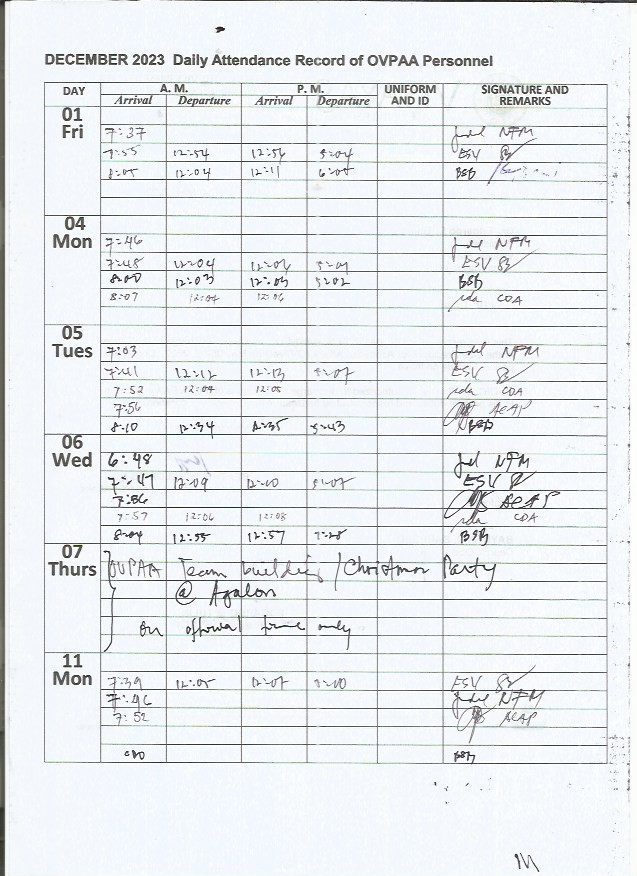 DECEMBER 2023 Daily Attendance Record of OVPAA Personnel
DAY A. M. P. M. UNIFORM AND ID SIGNATURE AND REMARKS
Arrival Departure Arrival Departure
01 Fri
7:37 NFM
7:55 12:54 12:56 5:04 ESV
8:05 12:04 12:11 6:05 BSB
04 Mon
7:46 NFM
7:48 12:04 12:06 5:01 ESV
8:00 12:03 12:03 5:02 BSB
8:07 12:04 12:06 CDA
05 Tues
7:03 NFM
7:41 12:12 12:13 5:07 ESV
7:52 12:04 12:05 CDA
7:56 ACAP
8:10 12:34 12:35 5:43 BSB
06 Wed
6:48 NFM
7:47 12:09 12:10 5:07 ESV
7:56 ACAP
7:57 12:06 12:08 CDA
8:04 12:55 12:57 BSB
07 Thurs
OVPAA Team building / Christmas Party
@ Agalon
on official time only
11 Mon
7:39 12:05 12:07 5:00 ESV
7:46 NFM
7:52 ACAP
BSB